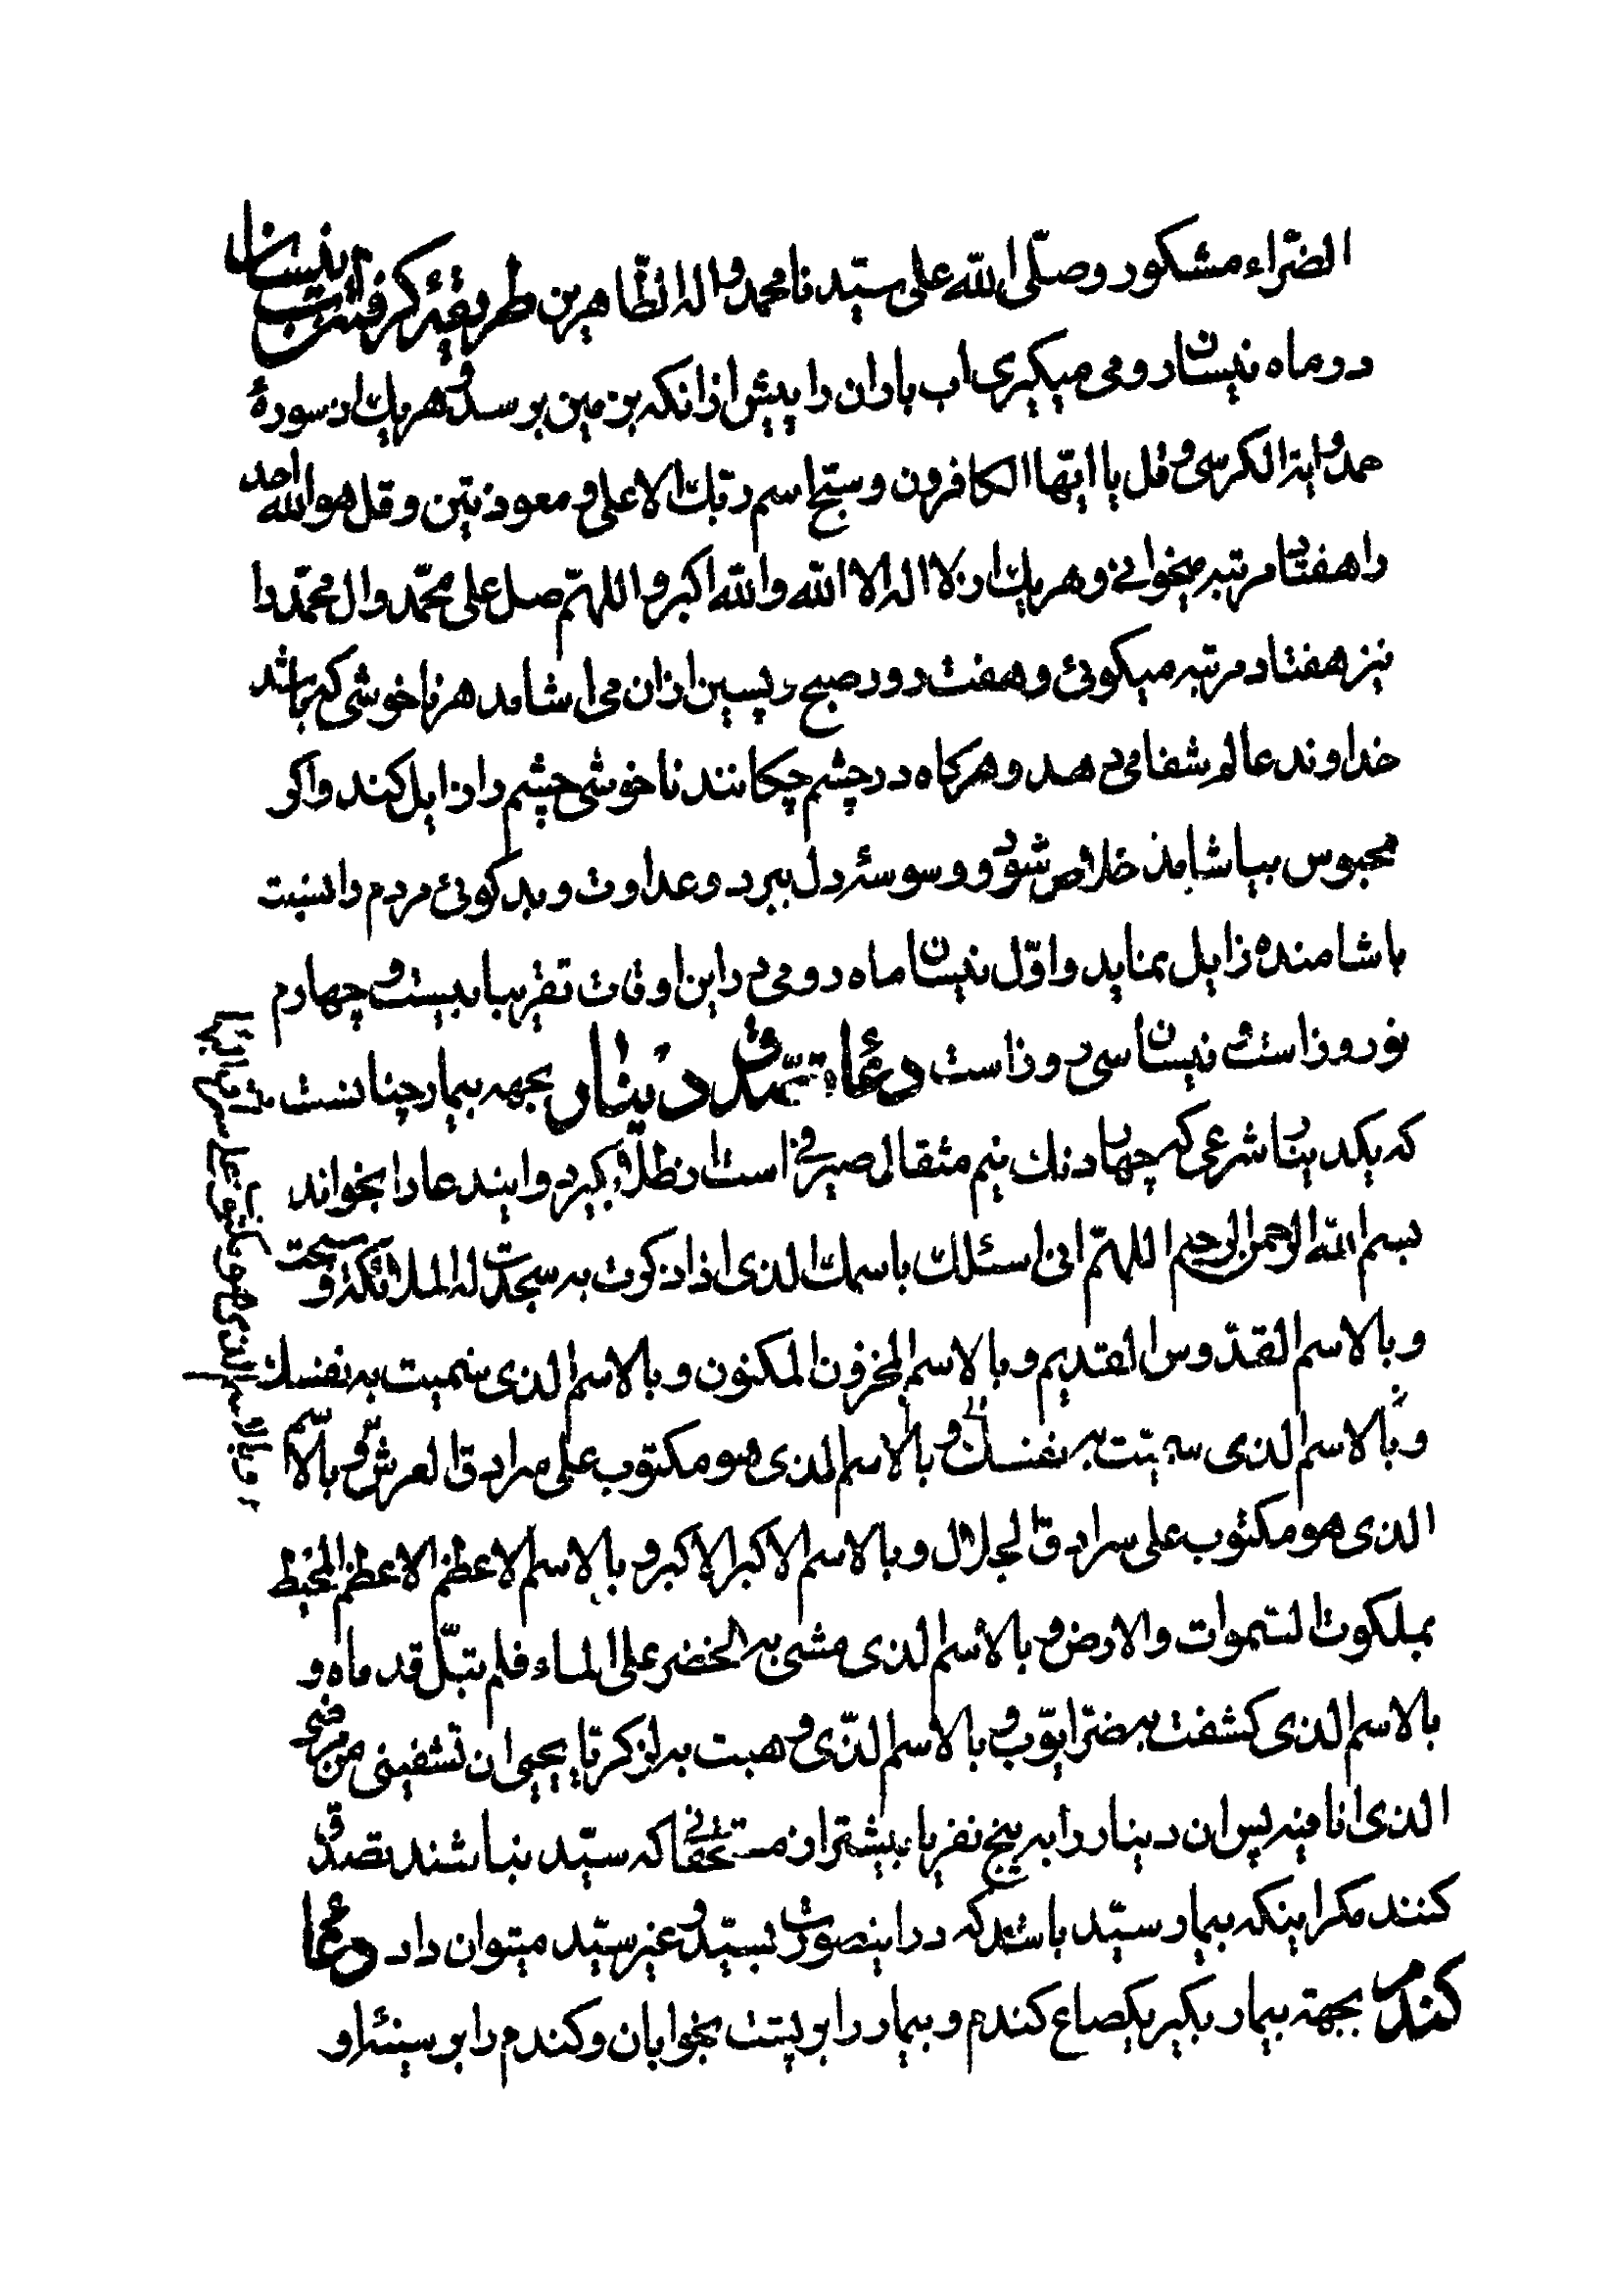 الضّراء مشكور وصلّى الله على سيّدنا محمد و اله الطّاهرين طريقهٔ گرفتن اب نيسان
در ماه نيسان رومى ميگيرى اب باران را پيش از انكه بزمين برسد و هر يك از سورهٔ
حمد و اية الكرسى و قل يا ايّها الكافرون و سبّح اسم ربّك الاعلى و معوذتين و قل هو الله احد
را هفتاد مرتبه ميخوانى و هر يك از لا اله الا الله والله اكبر و اللهمّ صل على محمّد وال محمّد را
نيز هفتاد مرتبه ميگوئى و هفت روز صبح و پسين ازان مى اشامد هر ناخوشى كه باشد
خداوند عالم شفا مى دهد و هر گاه در چشم چكانند ناخوشى چشم را زايل كند و اگر
محبوس بياشامد خلاص شود و وسوسهٔ دل ببرد و عداوت و بدگوئى مردم را نسبت
باشامنده زايل نمايد و اوّل نيسان ماه رومى در اين اوقات تقريبا بيست و چهارم
نوروز است و نيسان سى روز است دعاء تصدّق دينار بجهه بيمار چنانست
كه يكدينار شرعى كه چهار دنك نيم مثقال صيرفى است از طلا بگيرد و ايندعا را بخواند
بسم الله الرحمن الرحيم اللهمّ انى اسئلك باسمك الذى اذا ذكرت به سجدت له الملائكة و سبحت
و بالاسم القدّوس القديم و بالاسم المخزون المكنون و بالاسم الذى سميت به نفسك
و بالاسم الذى سميّت به نفسك و بالاسم الذى هو مكتوب على سرادق العرش و بالاسم
الذى هو مكتوب على سرادق الجلال و بالاسم الاكبر الاكبر و بالاسم الاعظم الاعظم المحيط
بملكوت السّموات والارض و بالاسم الذى مشى به الخضر على الماء فلم تبتلّ قدماه و
بالاسم الذى كشفت به ضرّ ايوّب و بالاسم الذّى وهبت به لزكريا يحيى ان تشفينى من مرضى
الذى انا فيه پس ان دينار را به پنج نفر يا بيشتر از مستحقانى كه سيّد نباشند تصدّق
كنند مگر اينكه بيمار سيّد باشد كه در اينصورت بسيّد و غير سيّد ميتوان داد دعاى
گندم بجهة بيمار بگير يكصاع گندم و بيمار را بر پشت بخوابان و گندم را بر سينهٔ او
و بالاسم الذى هو مكتوب على